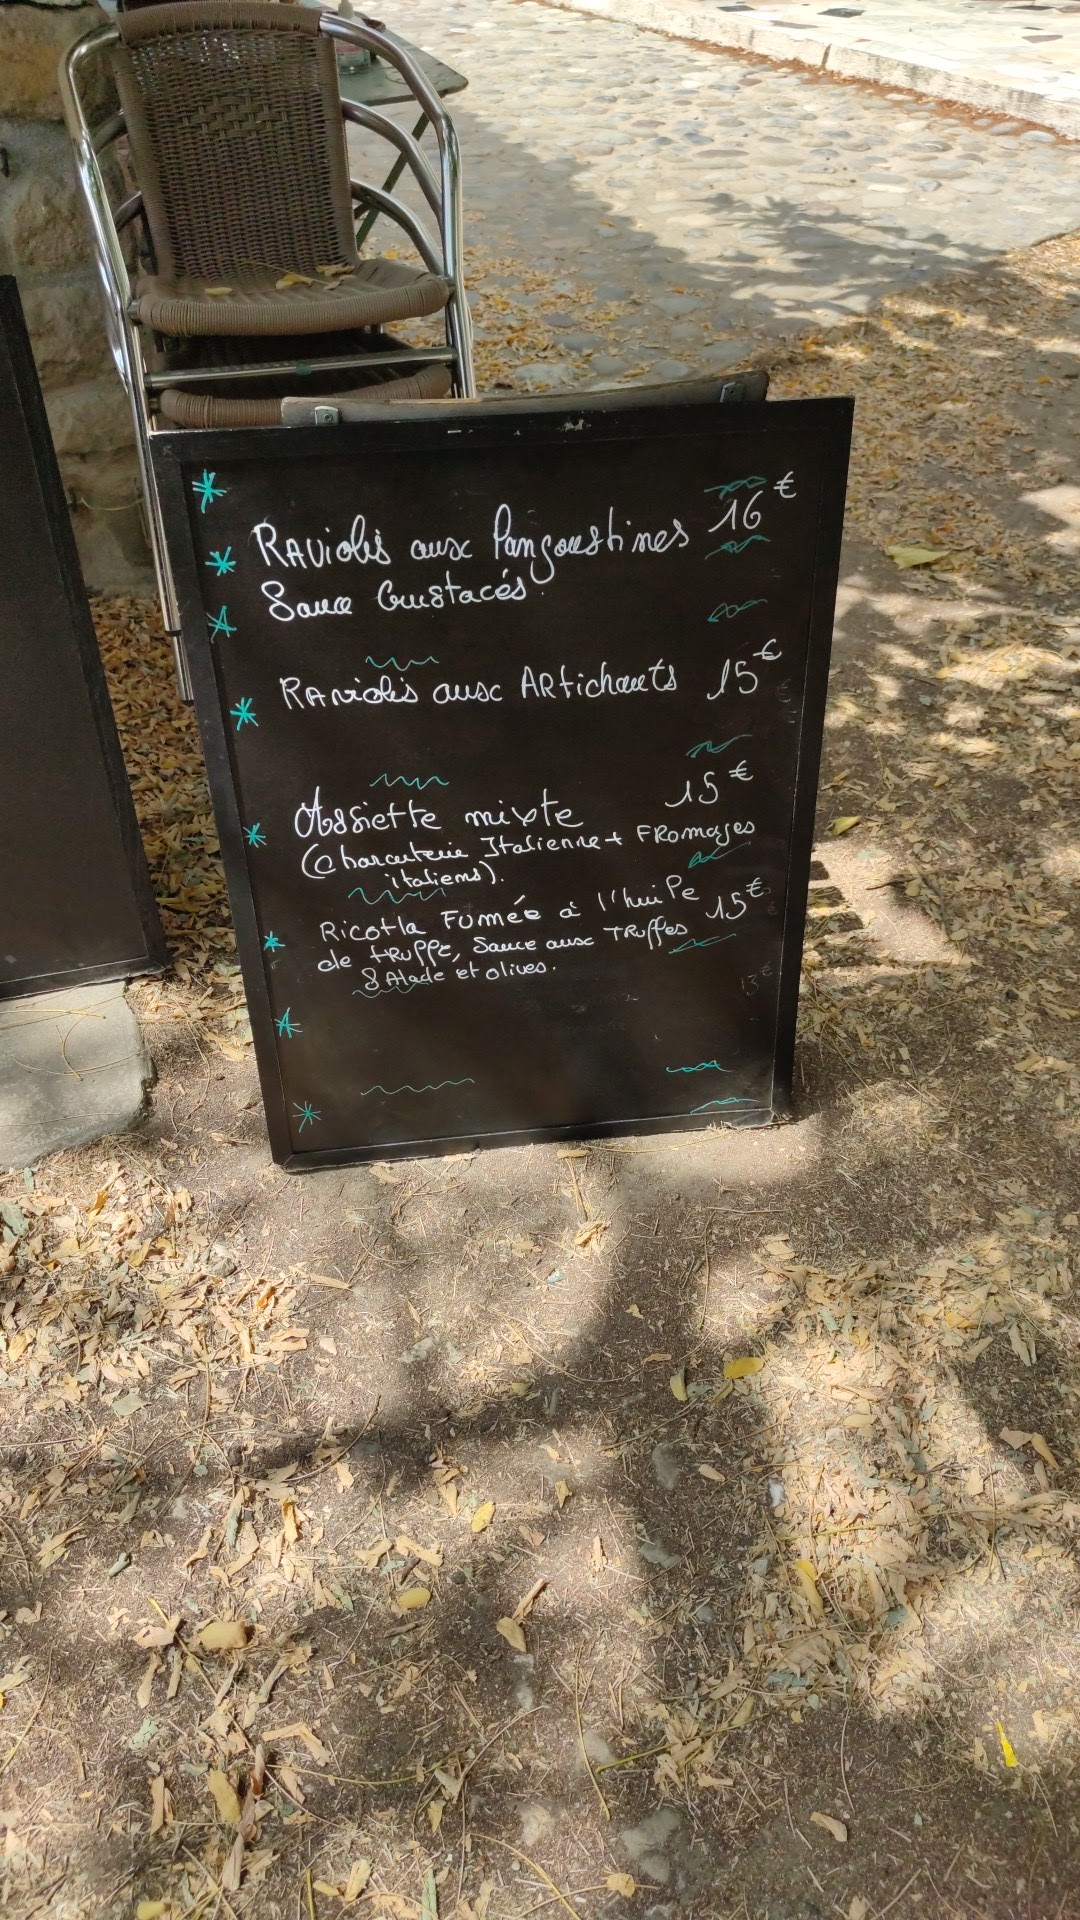 Raviolis aux langoustines 16€
Sauce Crustacés.
Raviolis aux Artichauts 15€
Assiette mixte 15€
(Charcuterie Italienne + Fromages
italiens).
Ricotta Fumée à l'huile 15€
de truffe, Sauce aux Truffes
Salade et olives.
13€